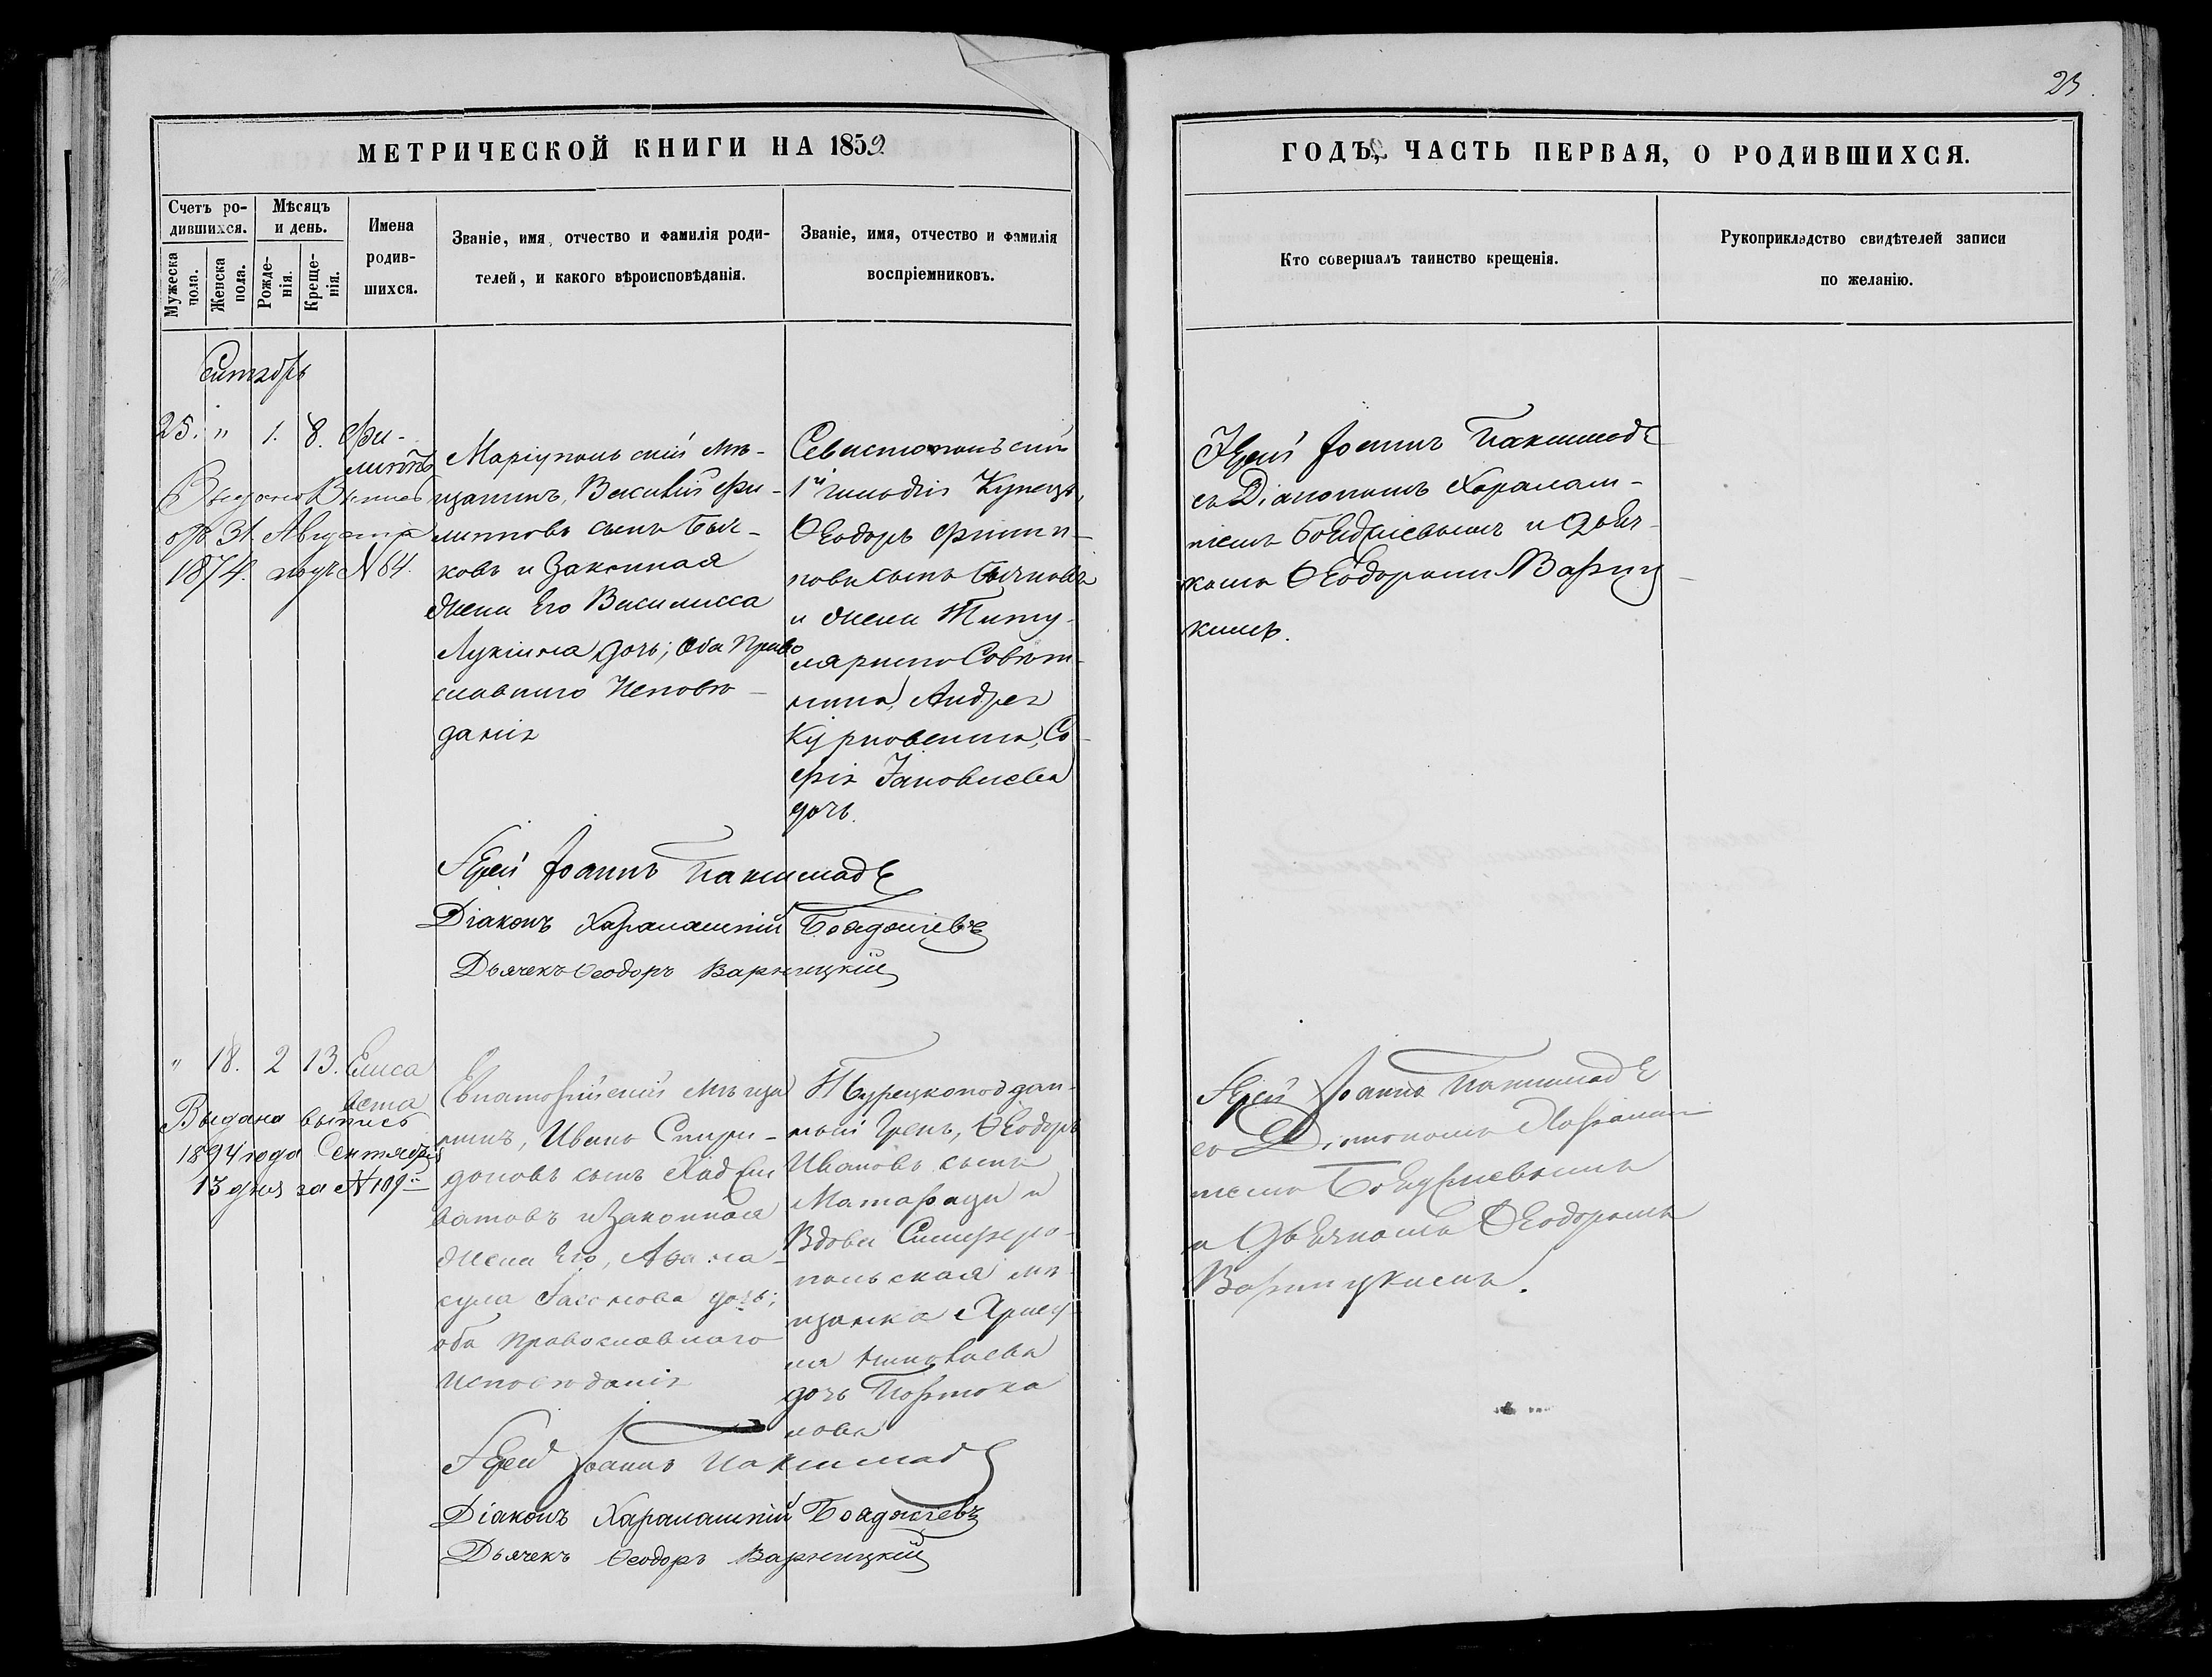 25.
МЕТРИЧЕСКОЙ КНИГИ НА 1859
ГОДЪ, ЧАСТЬ ПЕРВАЯ, О РОДИВШИХСЯ.
Счетъ ро-
дившихся.
Мужеска
пола.
Женска
пола.
Мѣсяцъ
и день.
Рожде-
нія.
Креще-
нія.
Имена
родив-
шихся.
Званіе, имя, отчество и фамилія роди-
телей, и какого вѣроисповѣданія.
Званіе, имя, отчество и фамилія
воспріемниковъ.
Кто совершалъ таинство крещенія.
Рукоприкладство свидѣтелей записи
по желанію.
Сентябрь
25. " 1. 8. Фи-
липпъ
Выдана Выпись
31 Августа
1874. года N 64.
Маріупольскій мѣ-
щанинъ, Василій Фи-
липповъ сынъ Быч-
ковъ и Законная
жена Его Василисса
Лукіина дочь; Оба Право
славнаго Исповѣ-
данія
Севастопольскій
1й гильдіи Купецъ,
Ѳеодоръ Филип-
повъ сынъ Бычковъ
и жена Титу-
лярнаго Совѣт-
ника, Андрея
Софія Іаковлева
дочь.
Іерей Іоаннъ Паксимаде
съ Діакономъ Харалам-
піемъ Бояджіевымъ и Дьяч-
комъ Ѳеодоромъ Варниц-
кимъ.
Іерей Іоаннъ Паксимаде
Діаконъ Харалампій Бояджіевъ
Дьячекъ Ѳеодоръ Варницкій
" 18. 2 13. Елиса
вета
Выдана выпись
1894 года Сентября
13 дня за N 109
Евпаторійскій мѣща
нинъ, Иванъ Спири-
доновъ сынъ Хаджи
и Законная
жена Его, Аѳана-
сула дочь;
оба Православнаго
Исповѣданія
Турецкоподдан-
ный Грекъ, Ѳеодоръ
Ивановъ сынъ
и
Вдова Симферо-
польская мѣ-
щанка
Николаева
дочь Портока
лова
Іерей Іоаннъ Паксимаде
съ Діакономъ Харалам-
піемъ Бояджіевымъ
и Дьячкомъ Ѳеодоромъ
Варницкимъ.
Іерей Іоаннъ Паксимаде
Діаконъ Харалампій Бояджіевъ
Дьячекъ Ѳеодоръ Варницкій